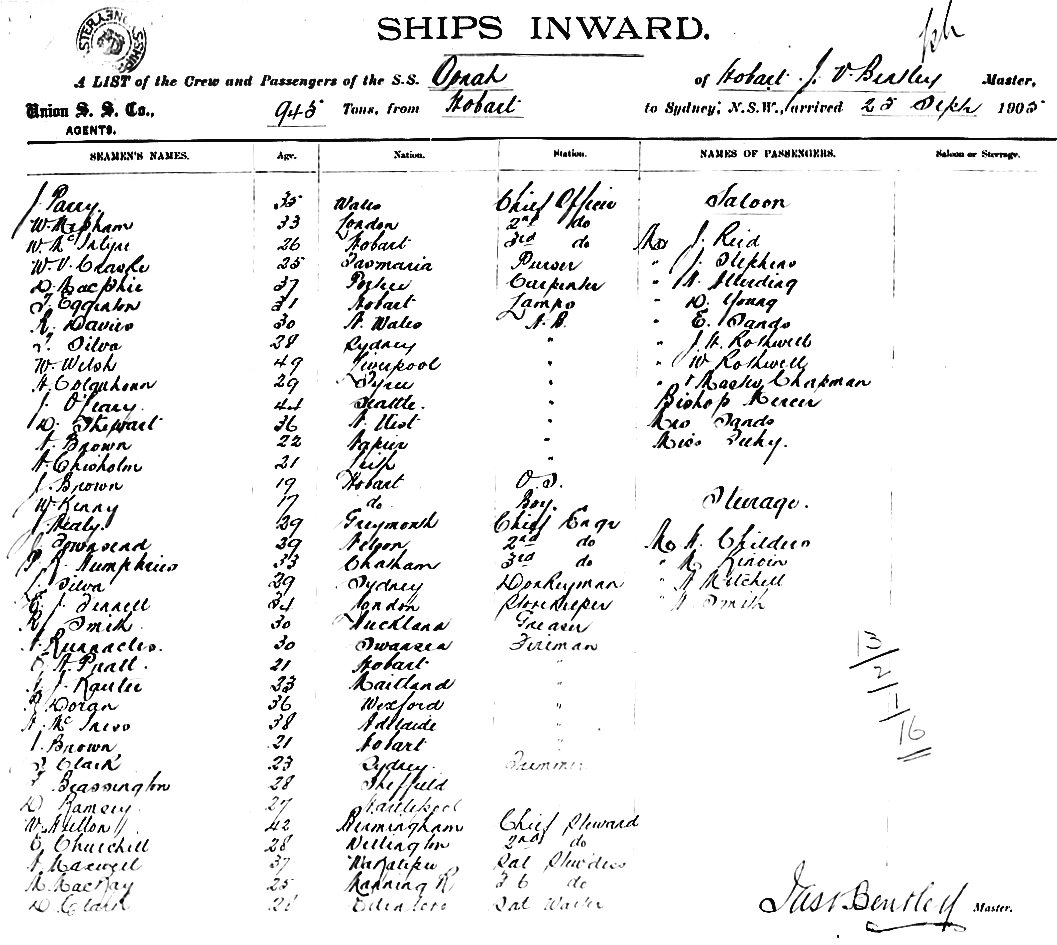 SHIPS INWARD.
A LIST of the Crew and Passengers of the S.S. Oonah of Hobart J. V Bentley Master,
Union S. S. Co., 945 Tons, from Hobart to Sydney, N.S.W., arrived 25 Sept 1905
AGENTS.
SEAMEN'S NAMES. Age. Nation. Station. NAMES OF PASSENGERS. Saloon or Steerage.
J. Parry 35 Wales Chief Officer Saloon
W. Mepham 33 London 2nd do
W. McIntyre 26 Hobart 3rd do Mr J. Reid
W. V. 25 Tasmania Purser " J. Stephens
D. Macphie 37 Carpenter " A.
T. Egginton 31 Hobart Lamps " D. Young
R. Davies 30 N. Wales A.B. " E. Sands
T. Silva 28 Sydney " " J. H. Rothwell
W. Welsh 49 Liverpool " " W Rothwell
A Colquhoun 29 " " Master Chapman
J. O'Leary 44 Seattle. " Bishop Mercer
D. Stewart 36 N. Uist " Mrs Sands
A. Brown 22 Napier " Miss
A. Chisholm 21 Leith "
J. Brown 19 Hobart O.S.
W. Kenny 17 do Boy. Steerage.
J Healy. 39 Greymouth Chief Engr
J Townsend 39 Nelson 2nd do Mr A. Childers
P. R. Humphries 33 Chatham 3rd do " M.
L. Silva 29 Sydney Donkeyman " A Mitchell
E. J. Fennell 34 London Storekeeper " A Smith
R. Smith 30 Auckland Greaser
A. Runnacles 30 Swansea Fireman
E. A. Pratt. 21 Hobart "
A. J. 23 Maitland "
P. Doran 36 Wexford "
A. McInnes 38 Adelaide "
J. Brown 21 Hobart "
J. Clark 23 Sydney. Trimmer
T. Beassington 28 Sheffield
D. Ramsey 27 Hartlepool
W. Hutton 42 Birmingham Chief Steward
E. Churchill 28 Wellington 2nd do
A Maxwell 37 Wakatipu Sal Stwdess
M. MacKay 25 Manning R do
D. Clark Sal Waiter
13/2/1/16
Jas V Bentley Master.